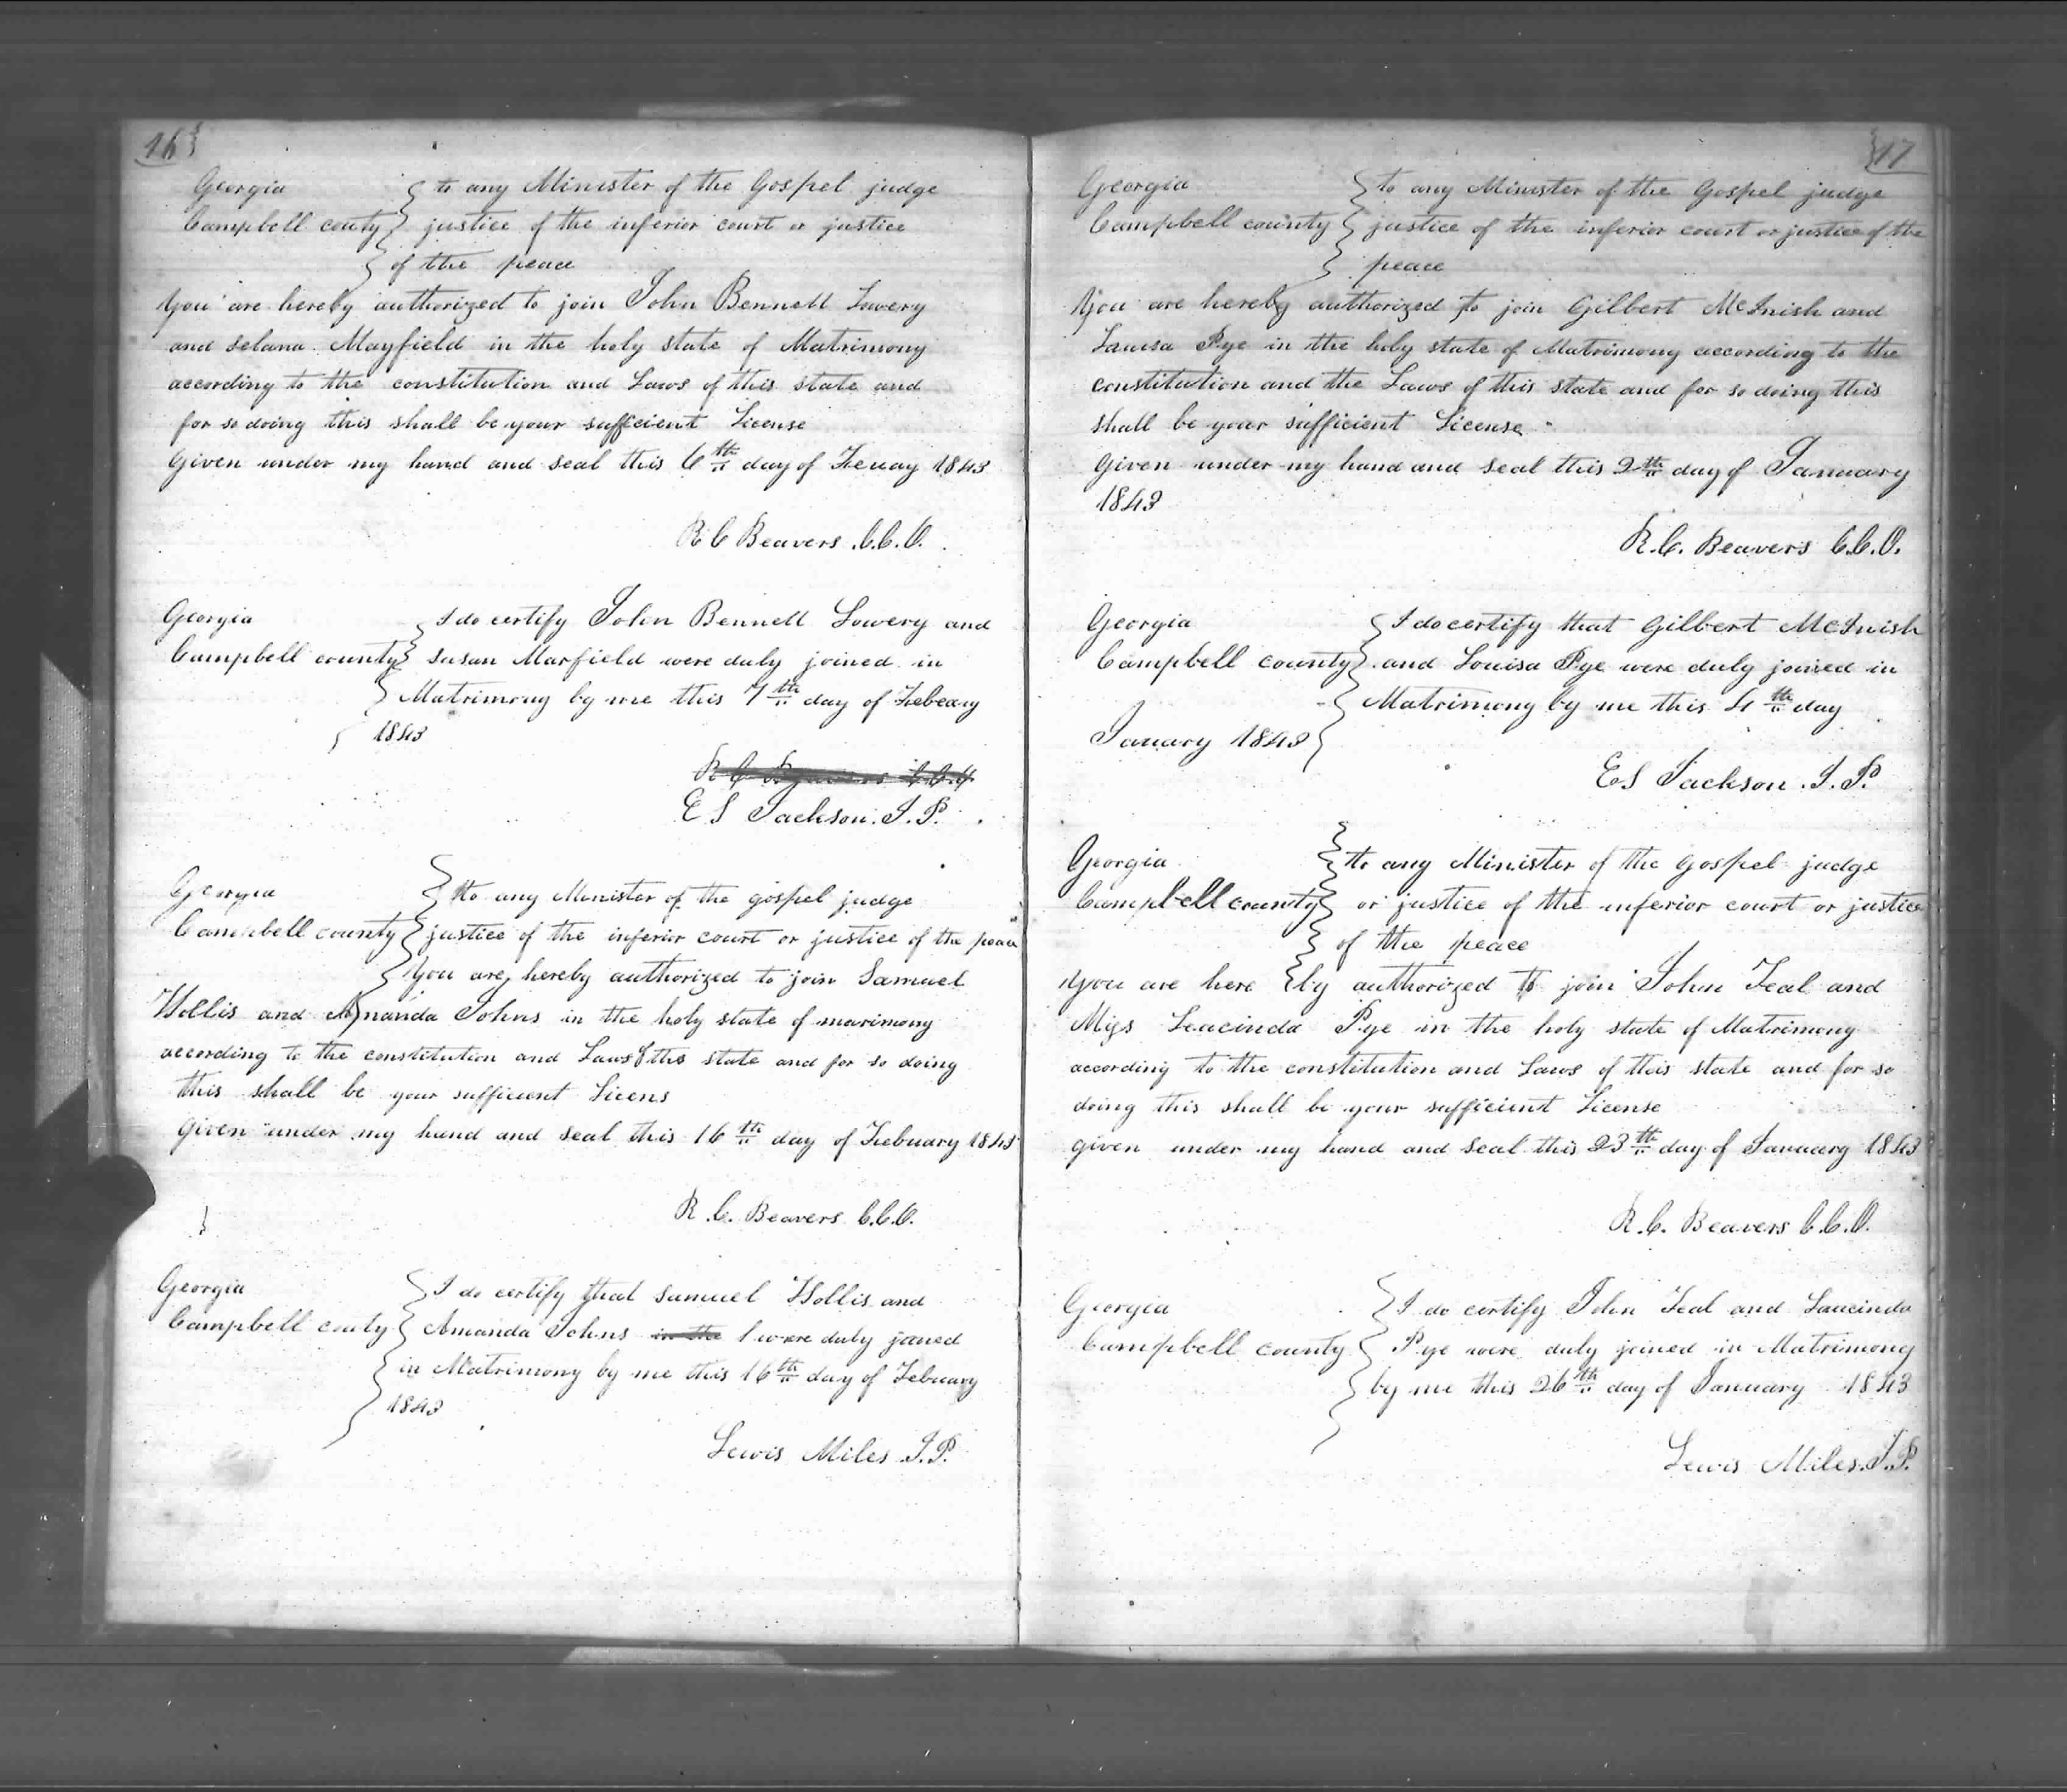 16
Georgia to any Minister of the Gospel judge
Campbell couty justice of the inferior court or justice
of the peace
You are hereby authorized to join John Bennett Lowery
and Selana Mayfield in the holy state of Matrimony
according to the constitution and Laws of this state and
for so doing this shall be your sufficient License
Given under my hand and seal this 6th day of Feuay 1843
R C Beavers C.C.O.
Georgia I do certify John Bennett Lowery and
Campbell county Susan Marfield were duly joined in
Matrimony by me this 7th day of Febeary
1843
R C Beavers C.C.O
E S Jackson. J. P.
Georgia to any Minister of the gospel judge
Campbell county justice of the inferior court or justice of the peace
You are hereby authorized to join Samuel
Hollis and Amanda Johns in the holy state of marimony
according to the constitution and Laws of this state and for so doing
this shall be your sufficient Licens
Given under my hand and seal this 16th day of Febuary 1843
R. C. Beavers C.C.O.
Georgia I do certify that Samuel Hollis and
Campbell couty Amanda Johns in the were duly joined
in Matrimony by me this 16th day of Febuary
1843
Lewis Miles J.P.
17
Georgia to any Minister of the Gospel judge
Campbell county justice of the inferior court or justice of the
peace
You are hereby authorized to join Gilbert McInish and
Louisa Pye in the holy state of Matrimony according to the
constitution and the Laws of this state and for so doing this
shall be your sufficient License
Given under my hand and seal this 2th day of January
1843
R. C. Beavers C.C.O.
Georgia I do certify that Gilbert McInish
Campbell county and Louisa Pye were duly joined in
Matrimony by me this 4th day
Januery 1843
E S Jackson. J. P.
Georgia to any Minister of the Gospel judge
Campbell county or justice of the inferior court or justice
of the peace
you are here by authorized to join John Teal and
Miss Leucinda Pye in the holy state of Matrimony
according to the constitution and Laws of this state and for so
doing this shall be your sufficient License
given under my hand and seal this 23th day of January 1843
R. C. Beavers C.C.O.
Georgia I do certify John Teal and Laucinda
Campbell county Pye were duly joined in Matrimony
by me this 26th day of January 1843
Lewis Miles. J.P.